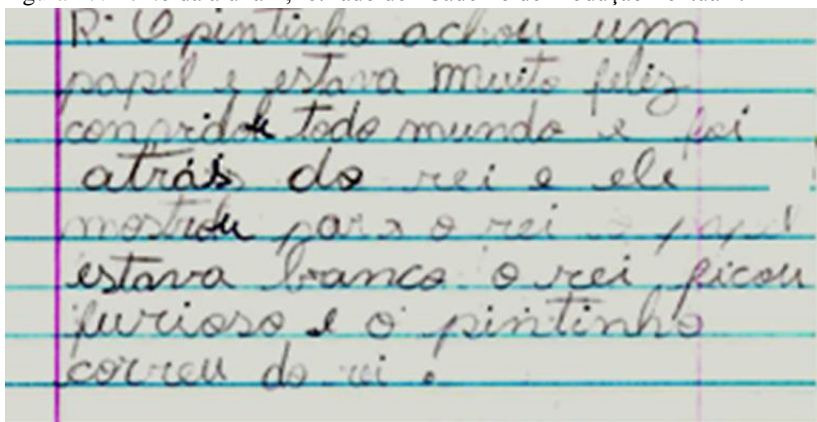 R: O pintinho achou um
papel e estava muito feliz
conpridou todo mundo e foi
atrás do rei e ele
mostrou para o rei e papel
estava branco o rei ficou
furioso e o pintinho
correu do rei.